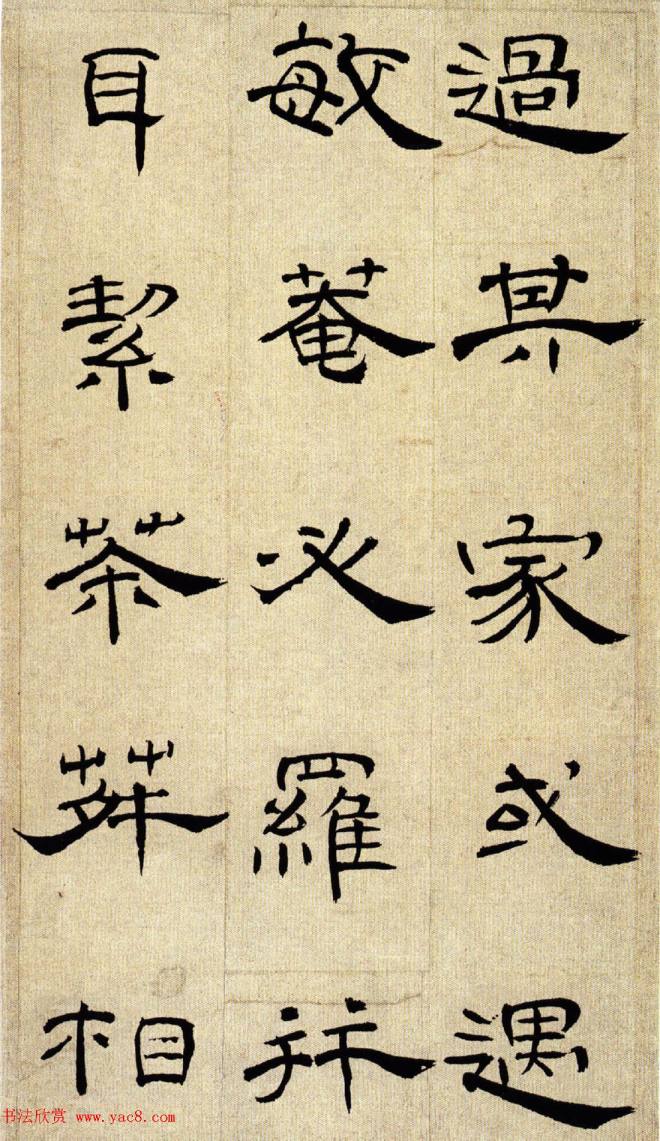 過其家或遇
敏菴必羅幷
耳絜茶荈相
书法欣赏 www.yac8.com